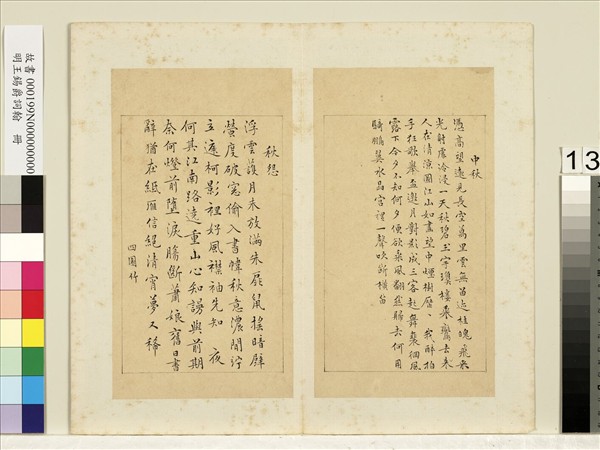 中秋
憑高望遠見長空萬里雲無留迹桂魄飛來
光射處冷浸一天秋碧玉宇瓊樓乘鸞去來
人在清涼國江山如畫望中煙樹歷、我醉拍
手狂歌舉盃邀月對影成三客起舞裵徊風
露下今夕不知何夕便欲乘風翻然歸去何用
騎鵬翼水晶宮裡一聲吹斷橫笛
秋怨
浮雲護月未放滿朱扉鼠搖暗壁
螢度破窓偷入書幃秋意濃閒佇
立庭柯影裡好風襟袖先知 夜
何其江南路遶重山心知謾與前期
奈何燈前墮淚腸斷蕭娘舊日書
辭猶在紙雁信絕清宵夢又稀
四園竹
故書 000199N000000000
明王錫爵詞翰 冊
13